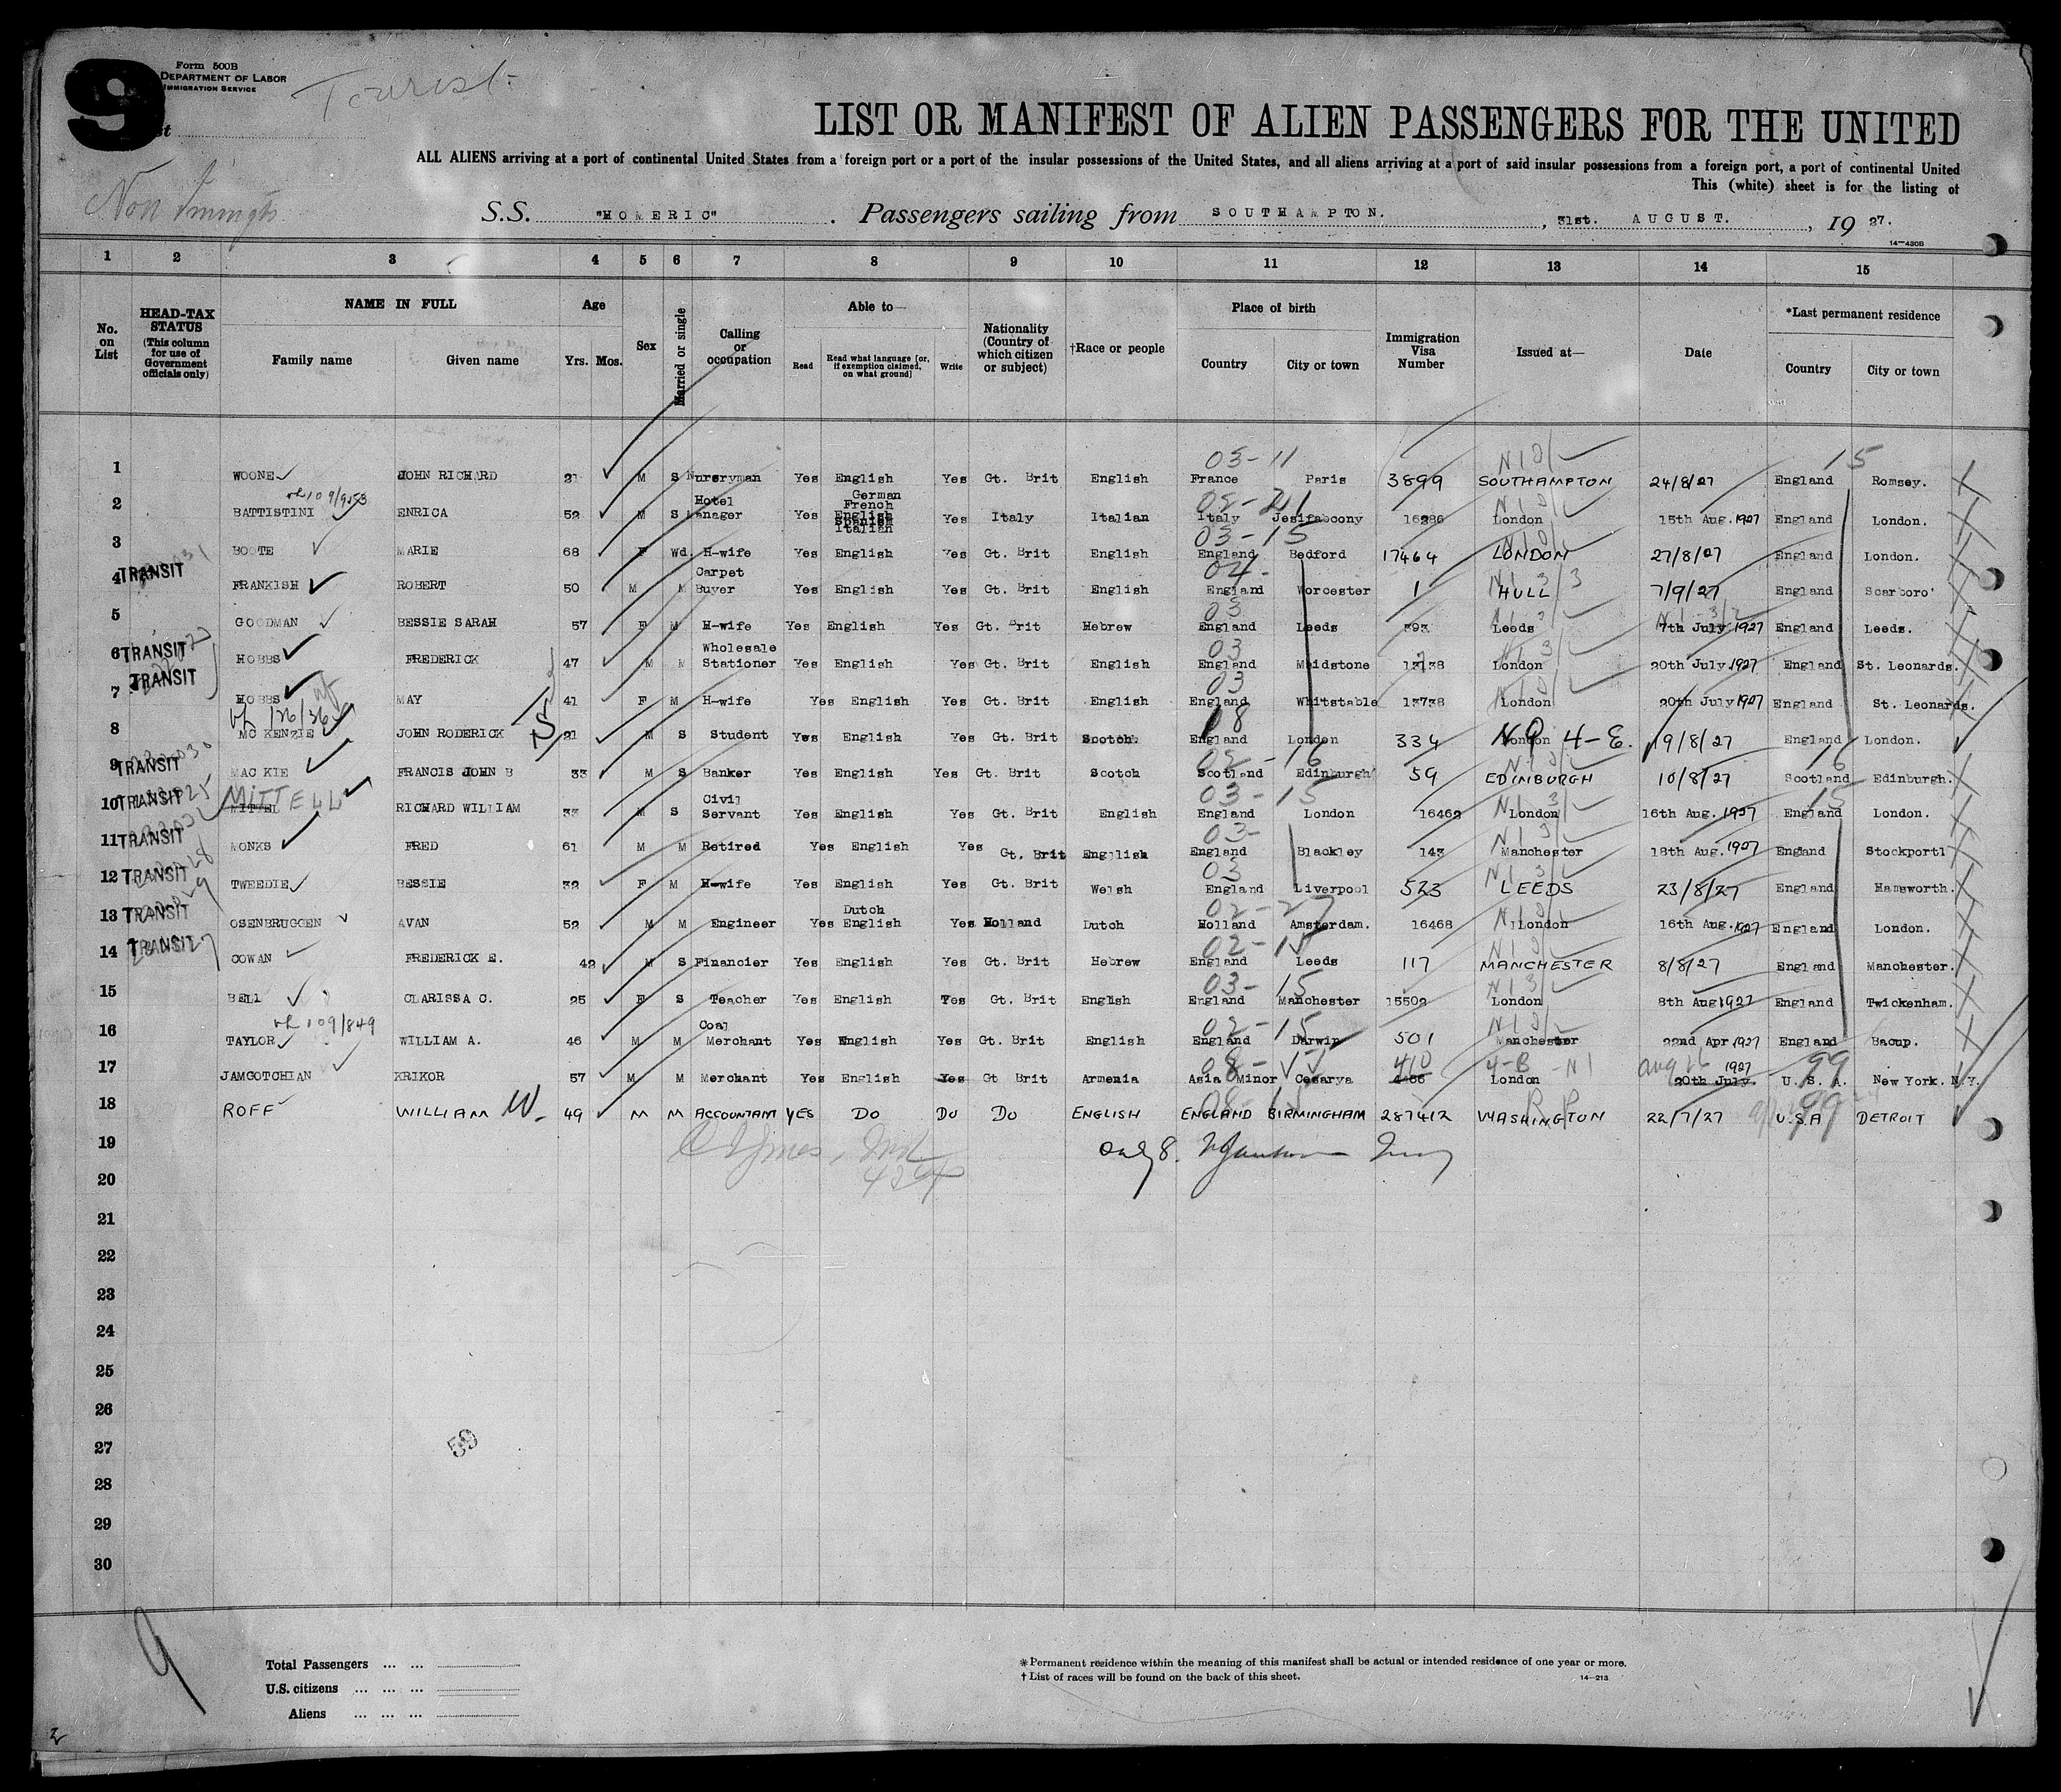 9
Form 500B
DEPARTMENT OF LABOR
IMMIGRATION SERVICE
Tourist
LIST OR MANIFEST OF ALIEN PASSENGERS FOR THE UNITED
ALL ALIENS arriving at a port of continental United States from a foreign port or a port of the insular possessions of the United States, and all aliens arriving at a port of said insular possessions from a foreign port, a port of continental United
This (white) sheet is for the listing of
Non Immigts
S.S. "HOMERIC". Passengers sailing from SOUTHAMPTON., 31st. AUGUST., 1927.
14-430B
1 2 3 4 5 6 7 8 9 10 11 12 13 14 15
No. on List
HEAD-TAX STATUS (This column for use of Government officials only)
NAME IN FULL
Family name Given name
Age
Yrs. Mos.
Sex
Married or single
Calling or occupation
Able to—
Read Read what language [or, if exemption claimed, on what ground] Write
Nationality (Country of which citizen or subject)
†Race or people
Place of birth
Country City or town
Immigration Visa Number
Issued at—
Date
*Last permanent residence
Country City or town
03-11 N13/✓ 15
1 WOONE JOHN RICHARD 21 M S Nurseryman Yes English Yes Gt. Brit English France Paris 3899 SOUTHAMPTON 24/8/27 England Romsey.
2 BATTISTINI ENRICA 52 M S Hotel Manager Yes German French English Spanish Italian Yes Italy Italian Italy 16286 London 15th Aug. 1927 England London.
03-15
3 BOOTE MARIE 68 F Wd. H-wife Yes English Yes Gt. Brit English England Bedford 17464 LONDON 27/8/27 England London.
4 TRANSIT FRANKISH ROBERT 50 M M Carpet Buyer Yes English Yes Gt. Brit English England Worcester 1 HULL 7/9/27 England Scarboro'
5 GOODMAN BESSIE SARAH 57 F M H-wife Yes English Yes Gt. Brit Hebrew England Leeds 393 Leeds 7th July 1927 England Leeds.
6 TRANSIT HOBBS FREDERICK 47 M M Wholesale Stationer Yes English Yes Gt. Brit English England Maidstone London 20th July 1927 England St. Leonards.
7 TRANSIT HOBBS MAY 41 F M H-wife Yes English Yes Gt. Brit English England Whitstable 13738 London 20th July 1927 England St. Leonards.
8 MC KENZIE JOHN RODERICK 21 M S Student Yes English Yes Gt. Brit Scotch. England London 334 London 4-E. 19/8/27 England London.
9 TRANSIT MAC KIE FRANCIS JOHN B 33 M S Banker Yes English Yes Gt. Brit Scotch Scotland Edinburgh 59 EDINBURGH 10/8/27 Scotland Edinburgh.
10 TRANSIT MITTEL MITTELL RICHARD WILLIAM 33 M S Civil Servant Yes English Yes Gt. Brit English England London 16462 London 16th Aug. 1927 England London.
11 TRANSIT MONKS FRED 61 M M Retired Yes English Yes Gt. Brit English England Blackley 143 Manchester 18th Aug. 1927 England Stockport
12 TRANSIT TWEEDIE BESSIE 32 F M H-wife Yes English Yes Gt. Brit Welsh England Liverpool 523 LEEDS 23/8/27 England Hamsworth.
13 TRANSIT OSENBRUGGEN AVAN 52 M M Engineer Yes Dutch English Yes Holland Dutch Holland Amsterdam. 16468 London 16th Aug. 1927 England London.
14 TRANSIT COWAN FREDERICK E. 42 M S Financier Yes English Yes Gt. Brit Hebrew England Leeds 117 MANCHESTER 8/8/27 England Manchester.
15 BELL CLARISSA C. 25 F S Teacher Yes English Yes Gt. Brit English England Manchester 15502 London 8th Aug 1927 England Twickenham.
16 TAYLOR WILLIAM A. 46 M M Coal Merchant Yes English Yes Gt. Brit English England Darwin 501 Manchester 22nd Apr 1927 England Bacup.
17 JAMGOTCHIAN KRIKOR 57 M M Merchant Yes English Yes Gt Brit Armenia Asia Minor Cesarya 410 London Aug 26 1927 20th July. U. S. A. New York. N.Y.
18 ROFF WILLIAM W. 49 M M ACCOUNTANT YES DO DO DO ENGLISH ENGLAND BIRMINGHAM 287412 WASHINGTON 22/7/27 U.S.A DETROIT
19
20
21
22
23
24
25
26
27
28
29
30
59
9
Total Passengers ... ...
U.S. citizens ... ... ...
Aliens ... ... ...
* Permanent residence within the meaning of this manifest shall be actual or intended residence of one year or more.
† List of races will be found on the back of this sheet. 14-213
2